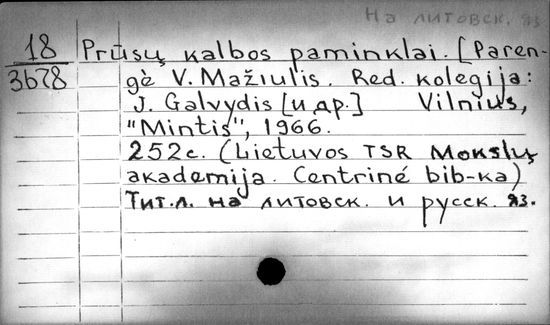 На литовск. яз.
18 Prūsų kalbos paminklai. [Paren-
3678 gė V. Mažiulis. Red. kolegija:
J. Galvydis [и др.] Vilnius,
"Mintis", 1966.
252с. (Lietuvos TSR Mokslų
akademija. Centrinė bib-ka)
Тит.л. на литовск. и русск. яз.